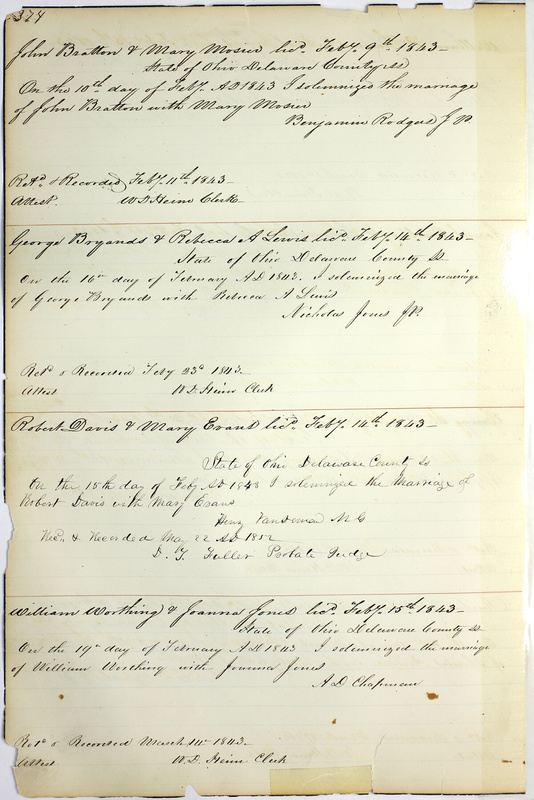 374
John Bratton & Mary Mosier lic.d Feb.y 9th 1843 —
State of Ohio Delaware County ss
On the 10th day of Feb.y AD 1843 I solemnized the marriage
of John Bratton with Mary Mosier
Benjamin Rodgers J P.
Ret.d & Recorded Feb.y 11th 1843 —
Attest. W D Heim Clerk
George Bryands & Rebecca A Lewis lic.d Feb.y 14th 1843 —
State of Ohio Delaware County ss
On the 16th day of February A D 1843. I solemnized the marriage
of George Bryands with Rebecca A Lewis
Nicholas Jones JP.
Ret.d & Recorded Feby 23d 1843 —
Attest W D. Heim Clerk
Robert Davis & Mary Evans lic.d Feb.y 14th 1843 —
State of Ohio Delaware County ss
On the 15th day of Feby AD 1843 I solemnized the Marriage of
Robert Davis with Mary Evans
Henry Vandeman M G
Rec.d & Recorded May 22 AD 1852
D. T. Fuller Probate Judge
William Worthing & Joanna Jones lic.d Feb.y 15th 1843 —
State of Ohio Delaware County ss
On the 19th day of February A D 1843 I solemnized the marriage
of William Worthing with Joanna Jones
A D Chapman
Ret.d & Recorded March 14th 1843.
Attest W. D. Heim Clerk